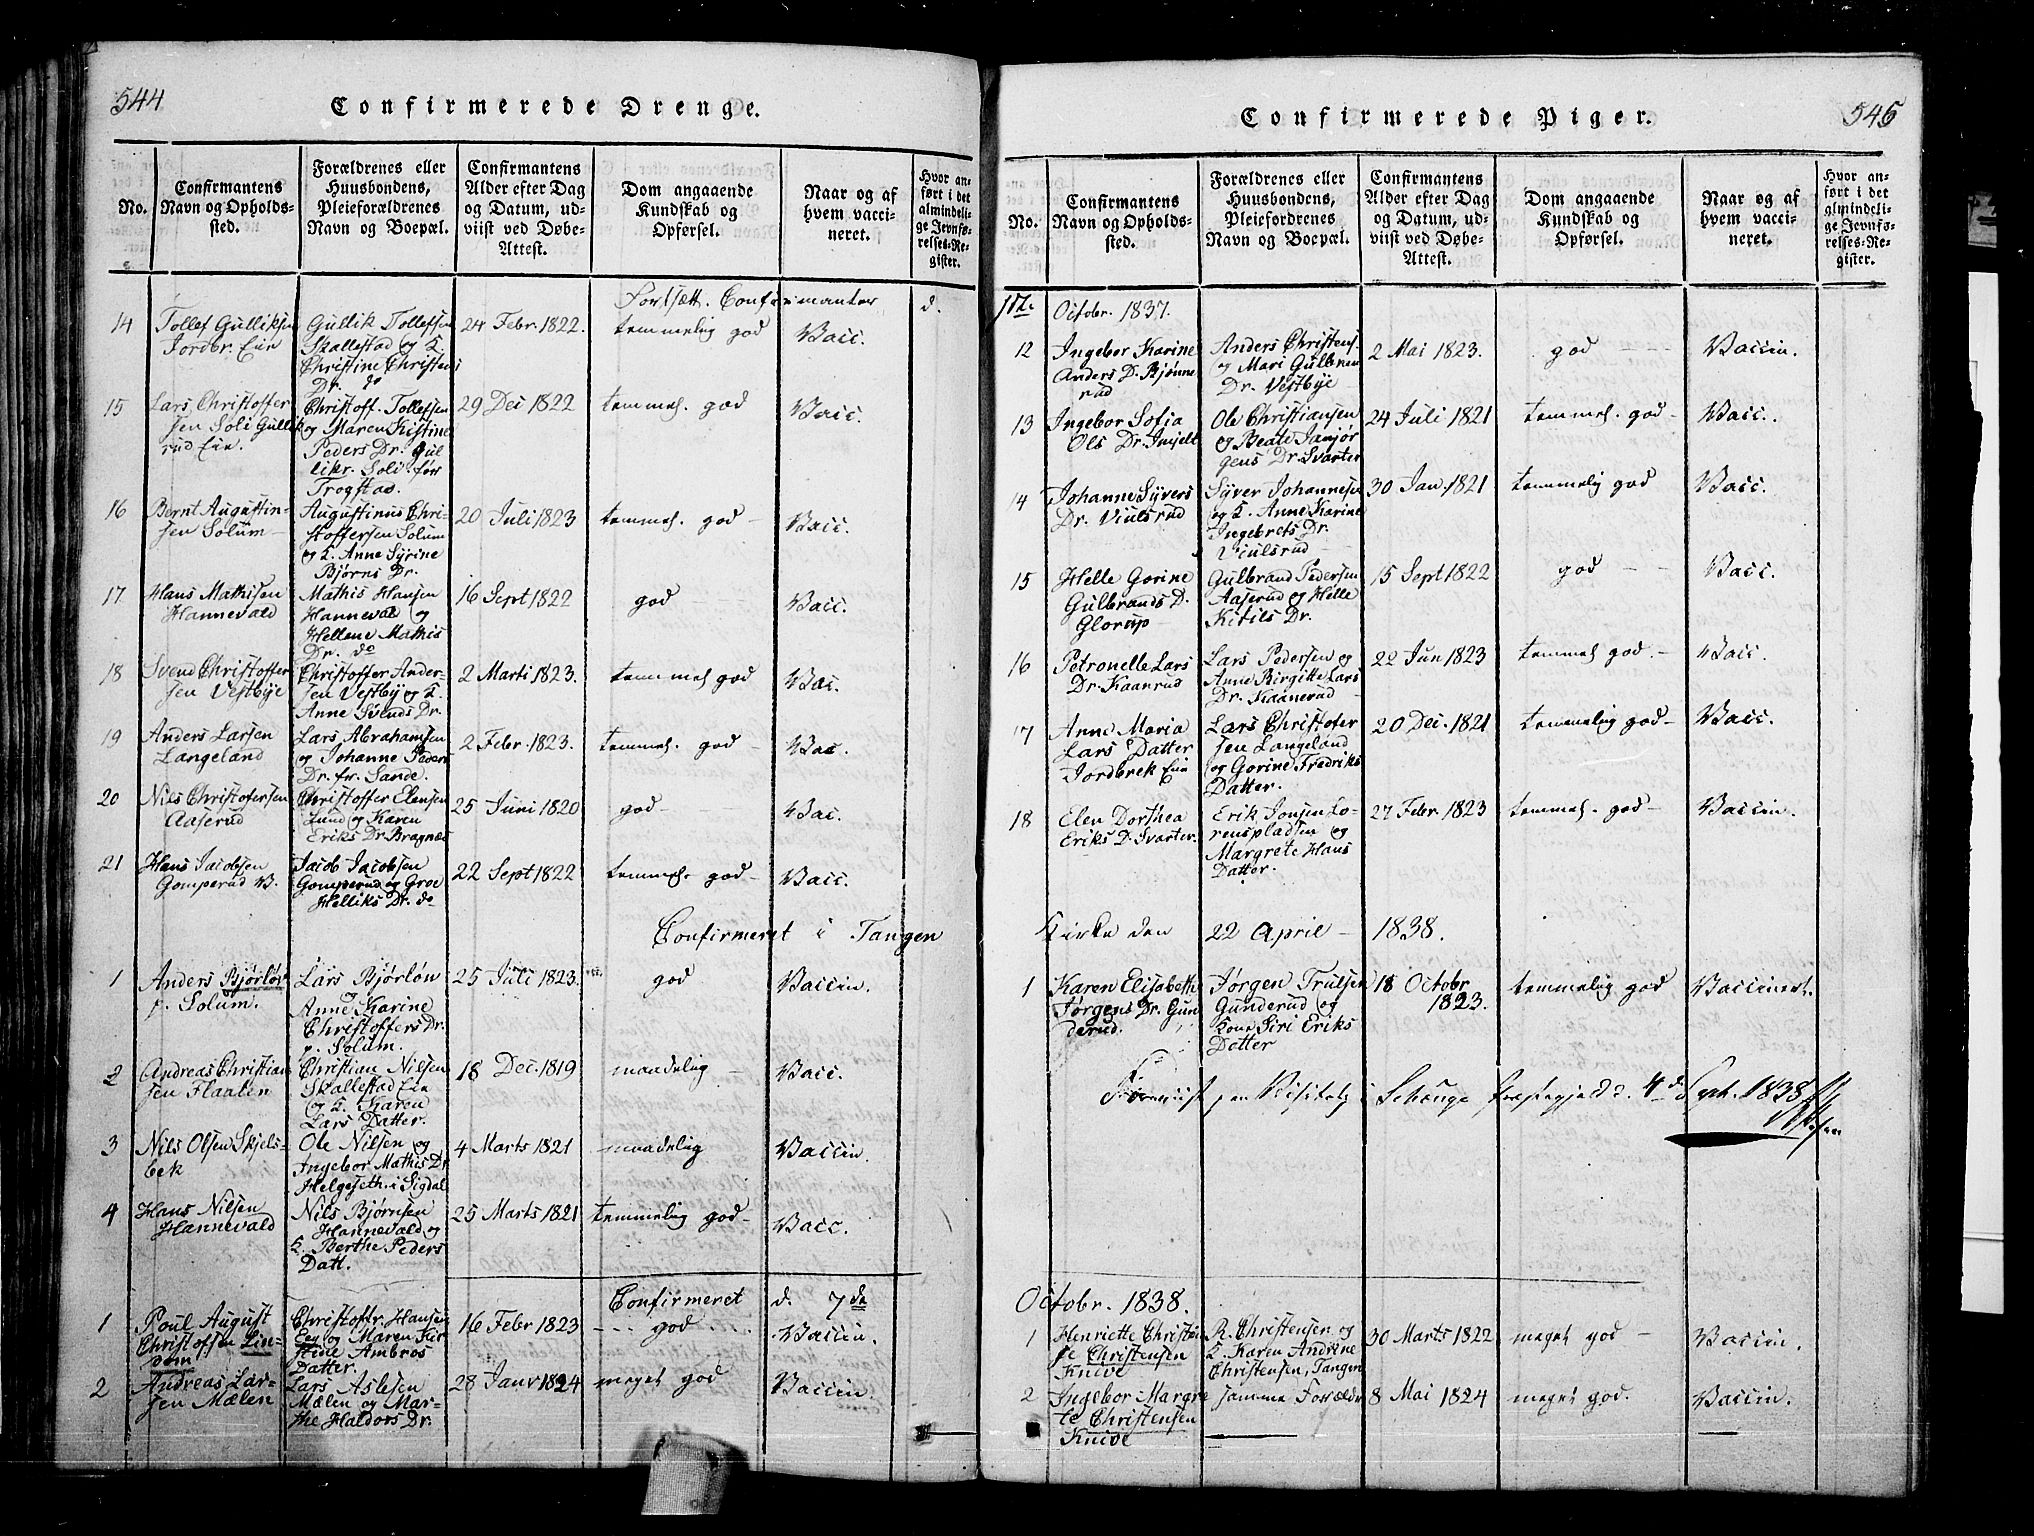 544
Confirmerede Drenge.
No.
Confirmantens
Navn og Opholds-
sted.
Forældrenes eller
Huusbondens,
Pleieforældrenes
Navn og Boepæl.
Confirmantens
Alder efter Dag
og Datum, ud-
viist ved Døbe-
Attest.
Dom angaaende
Kundskab og
Opførsel.
Naar og af
hvem vacci-
neret.
Hvor an-
ført i det
almindeli-
ge Jevnfø-
relses-Re-
gister.
Fortsatt. Confirmanter d.
14
Tollef Gulliksen
Jordbr. Eie
Gullik Tollefsen
Skallestad og K.
Christine Christens
Dr. do
24 Febr 1822.
temmelig god
Vacc.
15
Lars Christoffer
sen Soli Gullik
rud Eie.
Christoff. Tollefsen
og Maren Kistine
Peders Dr. Gul
likr. Soli før
Trogstad.
29 Dei 1822
temmel. god
Vacc.
16
Bernt Augustin-
sen Solum
Augustinus Chri-
stoffersen Solum
og K. Anne Syrine
Bjørns Dr.
20 Juli 1823
temmel. god
Vacc.
17
Hans Mathisen
Hannevald
Mathis Hansen
Hannevald og
Hellene Mathis
Dr. do
16 Sept 1822
god
Vacc.
18
Svend Christoffer
sen Vestbye
Christoffer Ander-
sen Vestby og K.
Anne Svends Dr.
2 Marti 1823.
temmel god
Vac.
19
Anders Larsen
Langeland
Lars Abrahamsen
og Johanne Peders
Dr. fr. Sande.
2 Febr. 1823.
temmel. god
Vac.
20
Nils Christofersen
Aaserud
Christoffer Elensen
Lund og Karen
Eriks Dr Bragnæs
25 Juni 1820
god
Vac.
21
Hans Jacobsen
Gomperud V.
Jacob Jacobsen
Gomperud og Groe
Helliks Dr. do
22 Sept 1822
temmel. god
Vacc.
Confirmeret i Tangen
1
Anders Bjørløv
p. Solum.
Lars Bjørløn
og
Anne Karine
Christoffers Dr.
p. Solum.
25 Juli 1823.
god
Vaccin.
2
Andreas Christian
sen Flaaten
Christian Nilsen
Skallestad Eie
og K. Karen
Lars Datter.
18 Dec. 1819
maadelig
Vacc.
3
Nils Olsen Skjels-
bek
Ole Nilsen og
Ingebor Mathis Dr
Helgeseth i Sigdal
4 Marts 1821
maadelig
Vaccin.
4
Hans Nilsen
Hannevald
Nils Bjørnsen
Hannevald og
K. Berthe Peders
Datt.
25 Marts 1821
temmelig god
Vacc.
Confirmeret d. 7de
1
Poul August
Christoffsen Lin-
dom
Christoffr. Hansen
Eeg og Maren Kir
stine Ambros
Datter.
16 Febr 1823
god
Vaccin.
2
Andreas Lar-
sen Mælen
Lars Aslesen
Mælen og Mar-
the Haldors Dr.
28 Janv 1824
meget god
Vaccin.
Confirmerede Piger.
545
No.
Confirmantens
Navn og Opholds-
sted.
Forældrenes eller
Huusbondens,
Pleiefordrenes
Navn og Boepæl.
Confirmantens
Alder efter Dag
og Datum, ud-
viist ved Døbe-
Attest.
Dom angaaende
Kundskab og
Opførsel.
Naar og af
hvem vacci-
neret.
Hvor an-
ført i det
almindeli-
ge Jevnfø-
relses-Re-
gister.
Octobr. 1837.
12
Ingebor Karine
Anders D. Bjønne
rud
Anders Christens.
og Mari Gulbran
Dr. Vestbye
2 Mai 1823.
god
Vaccin.
13
Ingebor Sofia
Ols Dr.
Ole Christiansen
og Beate Janjør
gens Dr. Svarter
24 Juli 1821
temmel. god
Vacc.
14
Johanne Syvers
Dr. Viulsrud
Syver Johannesen
og K. Anne Karine
Ingebrets Dr.
Viulsrud
30 Jan. 1821
temmelig god
Vacc.
15
Helle Gorine
Gulbrands D.
Glorup
Gulbrand Pedersen
Aaserud og Helle
Kitils Dr.
15 Sept 1822
god
Vacc.
16
Petronelle Lars
Dr. Kaanrud
Lars Pedersen og
Anne Birgitte Lars
Dr. Kaanerud
22 Jun 1823
temmel god.
Vacc.
17
Anne Maria
Lars Datter
Jordbrek Eie
Lars Christofer
sen Langeland
og Gorine Fredriks
Datter.
20 Dec. 1821
temmelig god
Vacc.
18
Elen Dorthea
Eriks D. Svarter.
Erik Jonsen Lo-
renspladsen og
Margrete Hans
Datter.
27 Febr. 1823
temmel. god
Vaccin.
Kirke den 22 April 1838.
1
Karen Elisabeth
Jørgens Dr. Gun
derud.
Jørgen Trulsen
Gunderud og
Kone Siri Eriks
Datter
18 Octobr
1823.
temmelig god
Vaccineret.
Foreviist paa Visitats i Schouge Præstegjeld d. 4de Sept. 1838
Octobr. 1838.
1
Henriette Christin
se Christensen
Knive
R. Christensen og
K. Karen Andrine
Christensen, Tangen
30 Marts 1822
meget god
Vaccin.
2
Ingebor Margre
te Christensen
Knive
samme Forældre
8 Mai 1824
meget god.
Vaccin.